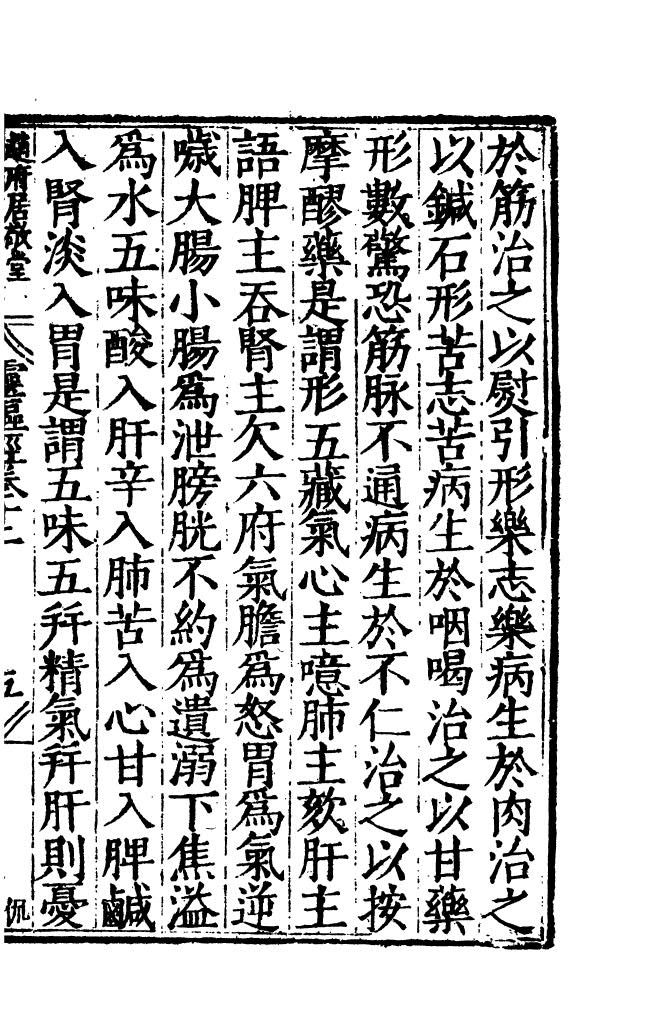 於筋治之以熨引形樂志樂病生於肉治之
以鍼石形苦志苦病生於咽喝治之以甘藥
形數驚恐筋脉不通病生於不仁治之以按
摩醪藥是謂形五藏氣心主噫肺主欬肝主
語脾主吞腎主欠六府氣膽爲怒胃爲氣逆
噦大腸小腸爲泄膀胱不約爲遺溺下焦溢
爲水五味酸入肝辛入肺苦入心甘入脾鹹
入腎淡入胃是謂五味五幷精氣幷肝則憂
趙府居敬堂 靈樞經卷十二 五 侃